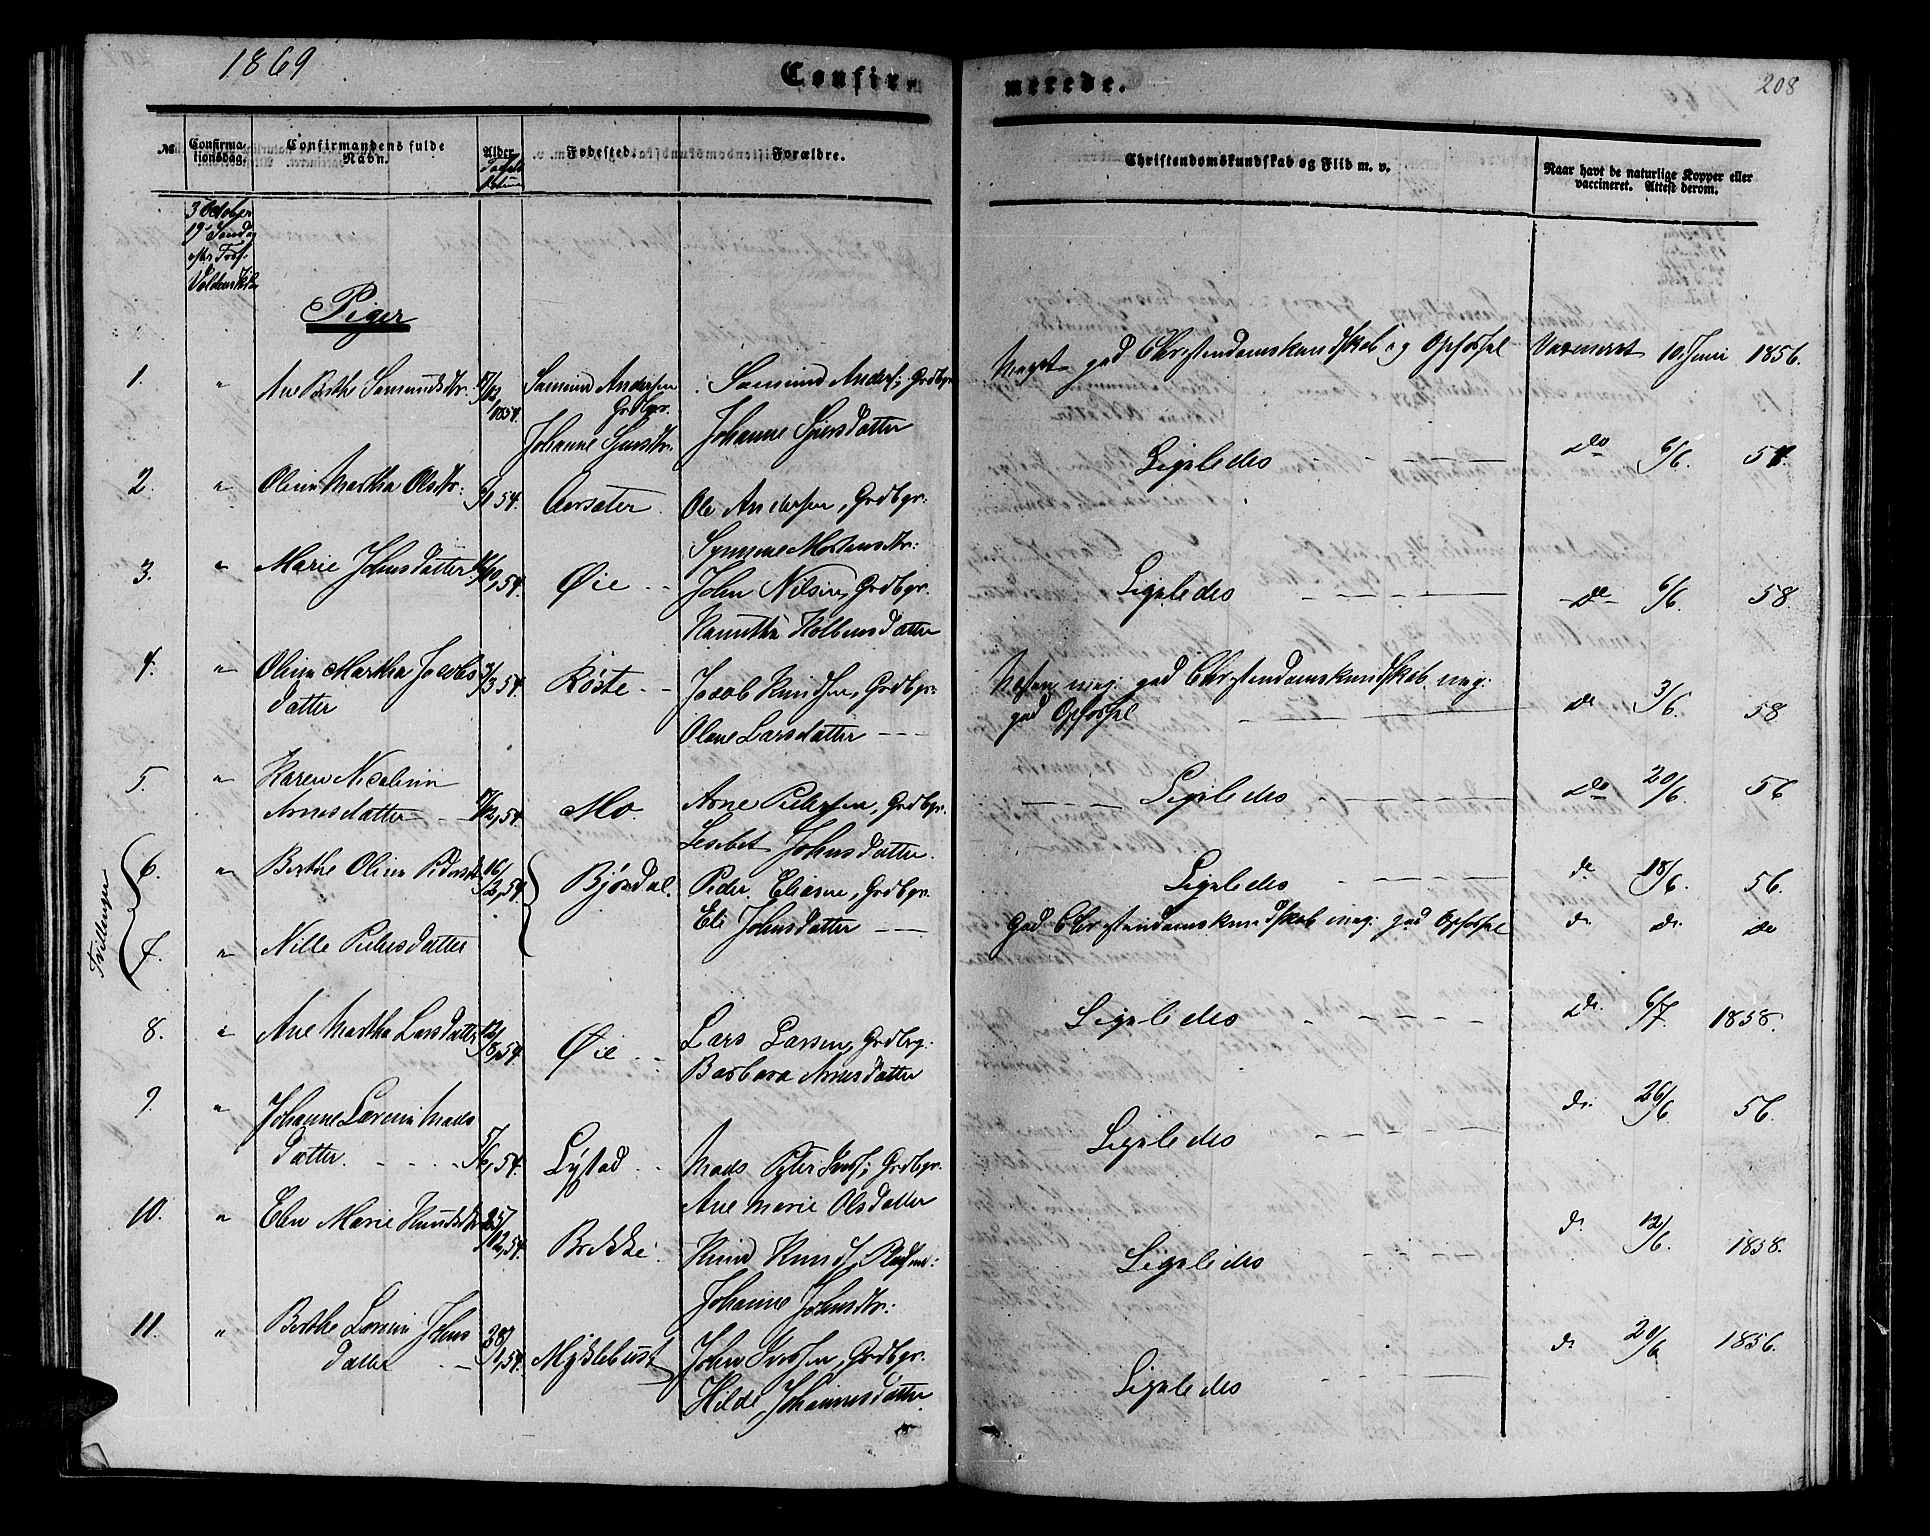 1869
Confir
merede.
208
No
Confirma-
tionsdag.
Confirmandens fulde
Navn.
Alder
Fødested.
Forældre.
Christendomskundskab og Flid m. v.
Naar havt de naturlige Kopper eller
vaccineret. Attest derom.
3 October
19 Søndag
Piger
1. " Ane Berthe Samundsdtr. 1854. Samund Andersen Samund Anders; Grdbgr
Grdbgr.
Johanne Sjursdtr. Johanne Sjursdatter
Meget god Christendomskundskab og Opførsel Vaccineret 10 Juni 1856.
2. " Oline Martha Olsdtr. 54. Aarsæter Ole Andersen, Grdbgr.
Synneve Mortensdtr.
Ligeledes do 6/6. 57.
3. " Marie Johnsdatter 54. Øie John Nilsen, Grdbgr.
Ligeledes do 6/6. 58
4. " Oline Martha Jacobs 3/3 54. Røste Jacob Knudsen, Grdbgr.
datter
Olene Larsdatter
Næsten meg. god Christendomskundskab meg.
god Opførsel do 3/6. 58
5. " Karen Nicoline
Arnesdatter 54. Mo Arne Petersen, Grdbgr.
Lisebet Johnsdatter.
Ligeledes do 20/6. 56
Tvillinger
6. " Berthe Oline Pedersdtr 16/2, 54. Bjørdal. Peder Eliasen, Grdbgr.
Eli Johnsdatter
Ligeledes do 18/6. 56.
7. " Nille Pedersdatter
God Christendomskundskab meg. god Opførsel do do. do
8. " Ane Martha Larsdatter 12/8, 54. Øie Lars Larsen, Grdbrg.
Barbara Arnesdatter
Ligeledes do. 6/7. 1858.
9. " Johanne Lovise Mads
datter. 54. Lystad Mads Peter Iversen; Grdbgr.
Ane Marie Olsdatter
Ligeledes do. 26/6. 56.
10. " Elen Marie Knudsdtr 25/12, 54. Brekke Knud Knuds, Pladsmd.
Johanne Johnsdtr.
Ligeledes do 12/6. 1858.
11. " Berthe Lovise Johns
datter 28/1, 54. Myklebust John Iversen, Grdbgr.
Hilde Johannesdatter
Ligeledes do 20/6 1856.